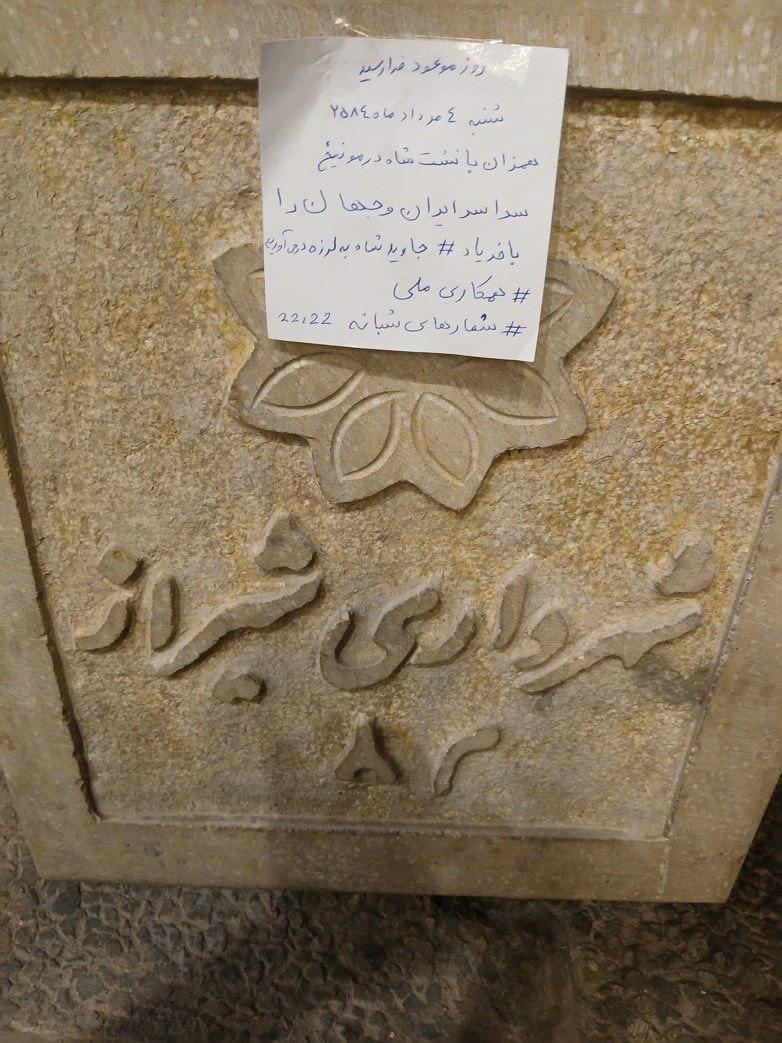 روز موعود فرارسید
شنبه ٤ مرداد ماه ۲۵۸٤
همزمان با نشست شاه در مونیخ
سراسر ایران و جهان را
با فریاد # جاوید شاه به لرزه در می آوریم
# همکاری ملی
# شعارهای شبانه 22:22
شهرداری شیراز